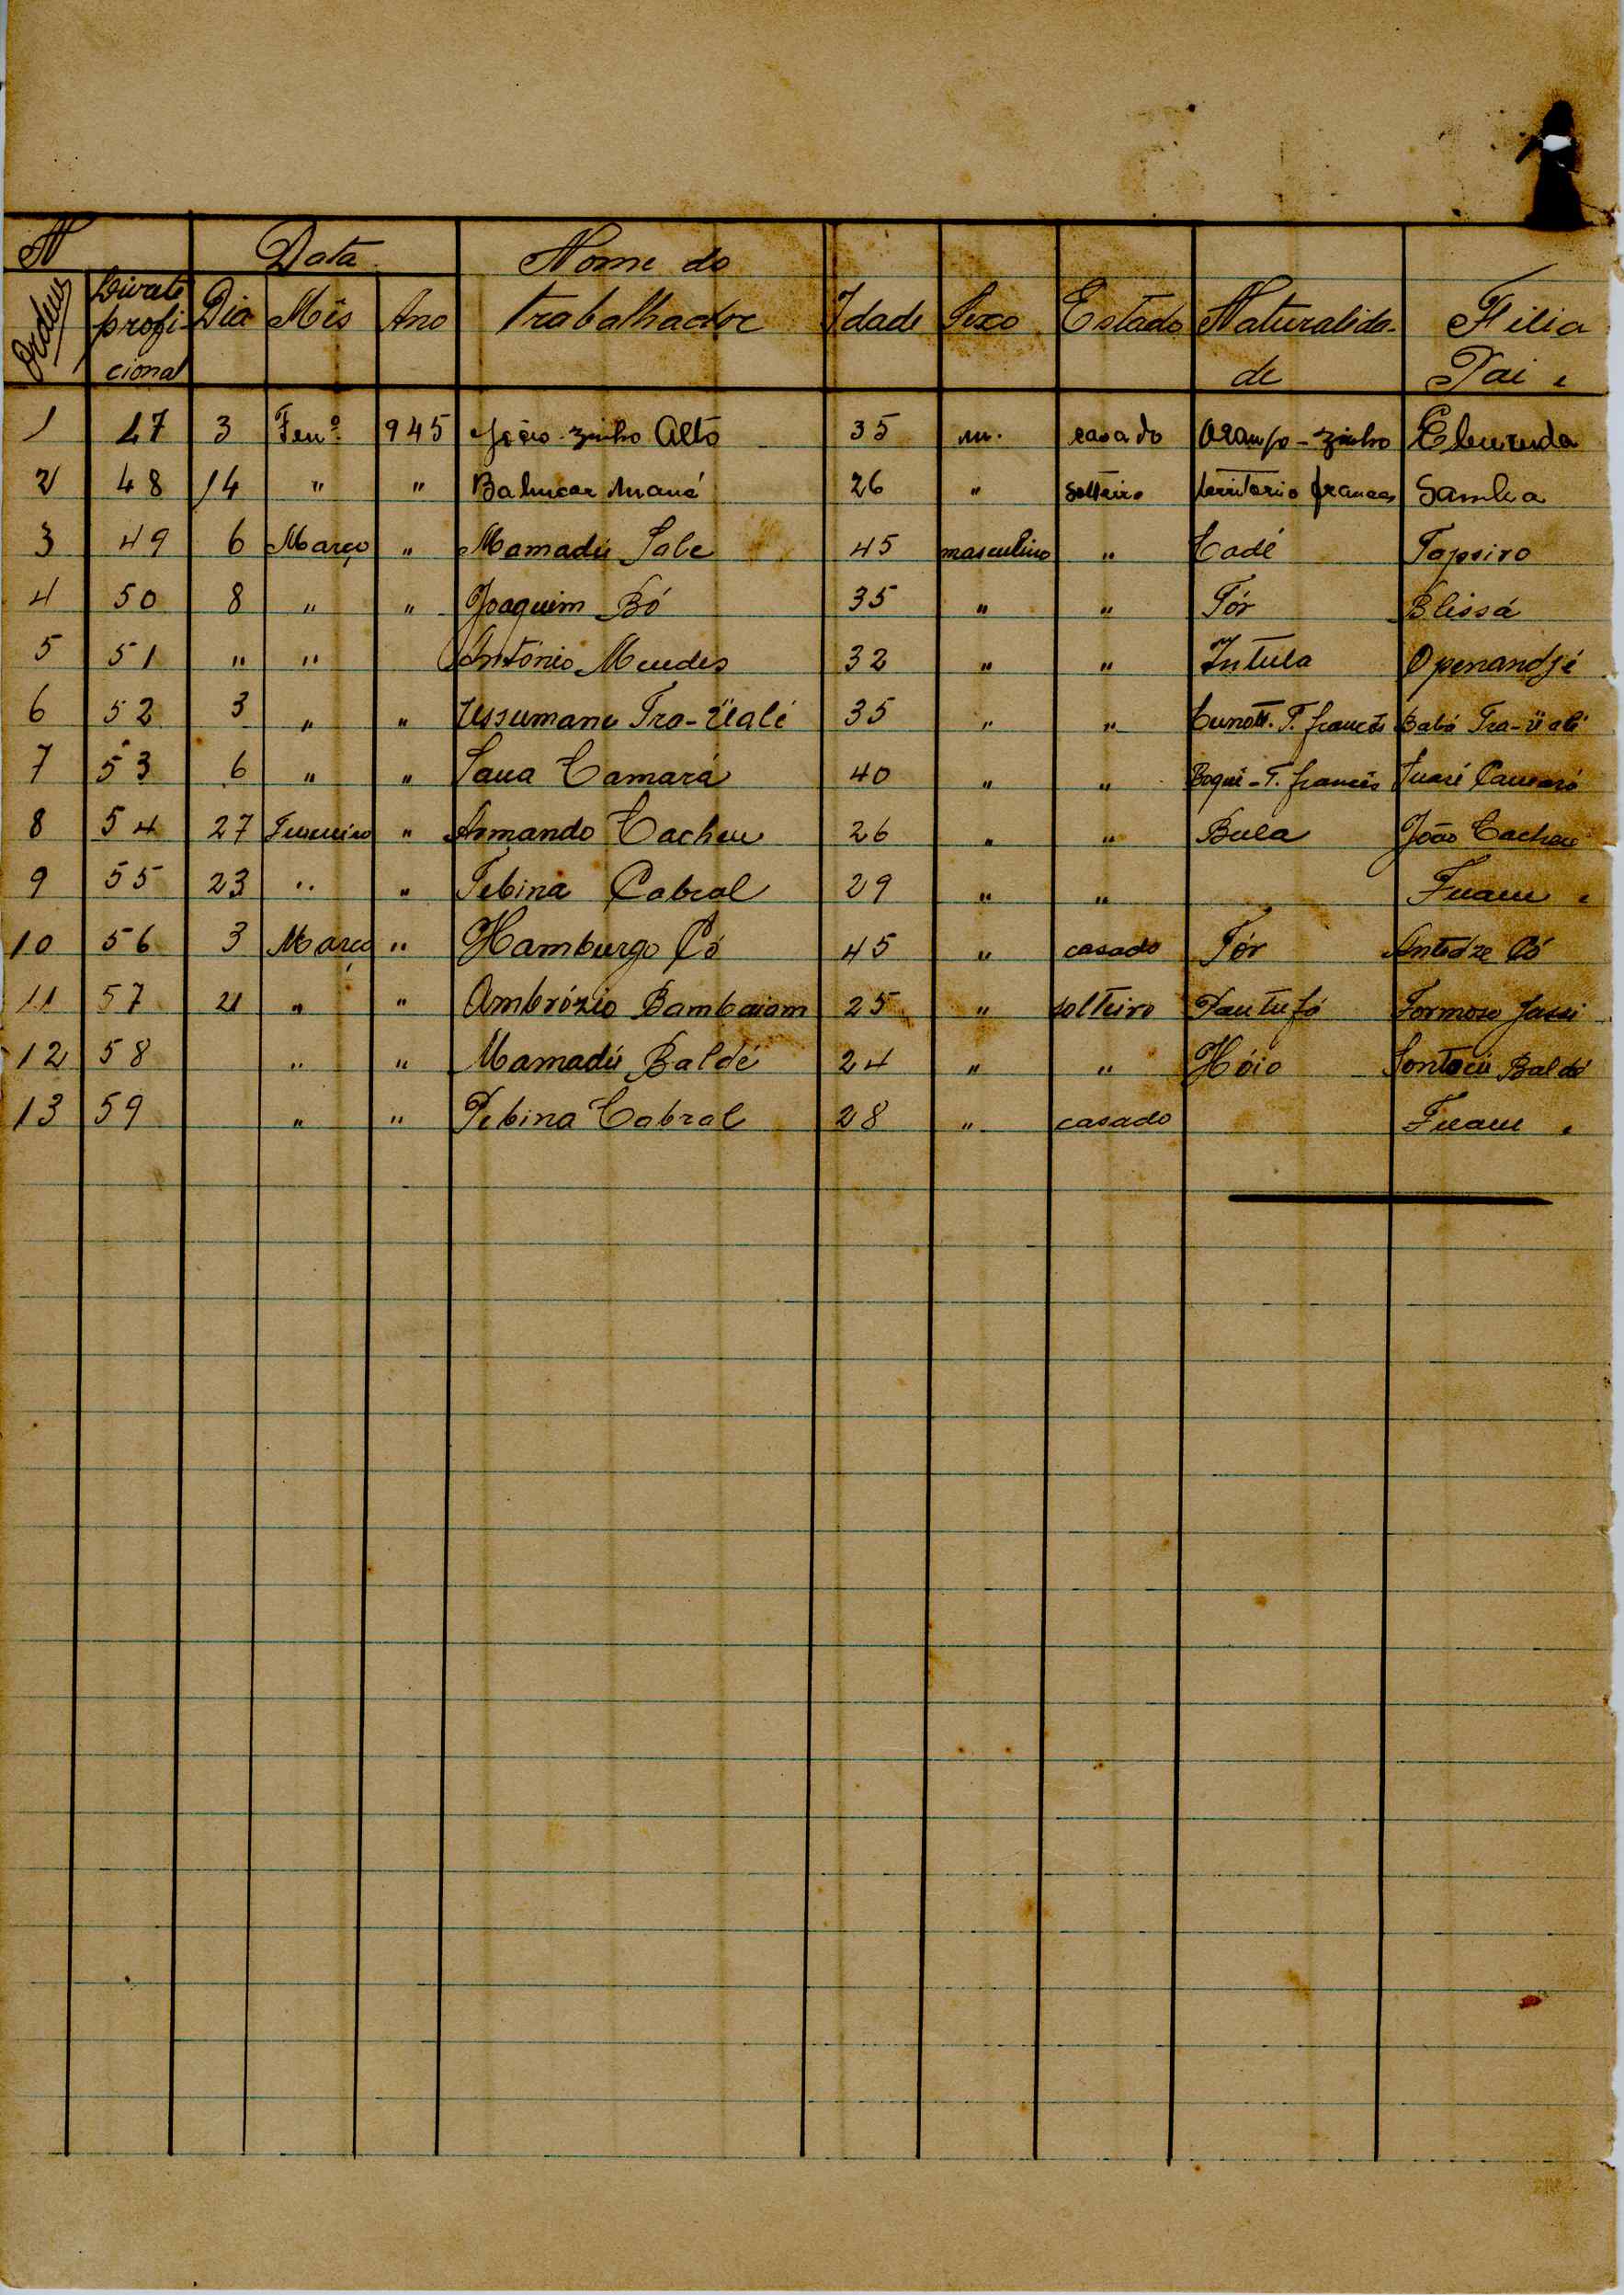 N Data Nome do
Ordem Livrete profi- cional Dia Mês Ano trabalhador Idade Sexo Estado Naturalida- de Filia Pai e
1 47 3 Fevº 945 João-zinho Alto 35 m. casado Orango-zinho
2 48 14 " " Babucar Mané 26 " solteiro territorio frances Samba
3 49 6 Março " Mamadú Jale 45 masculino " Cadé
4 50 8 " " Joaquim Có 35 " " Tór Blissá
5 51 " " António Mendes 32 " " Intula Openandjé
6 52 3 " " Ussumane Tra-Üalé 35 " " T. francês Babá Tra-üalé
7 53 6 " " Sana Camará 40 " " Boqué-T. francês Camará
8 54 27 Fevereiro " Armando Cacheu 26 " " Bula João Cacheu
9 55 23 " " Tebina Cabral 29 " "
10 56 3 Março " Hamburgo Có 45 " casado Tór Có
11 57 21 " " Ambrózio Bambaiam 25 " solteiro Formoso
12 58 " " Mamadú Baldé 24 " " Hóio Baldé
13 59 " " Tebina Cabral 28 " casado